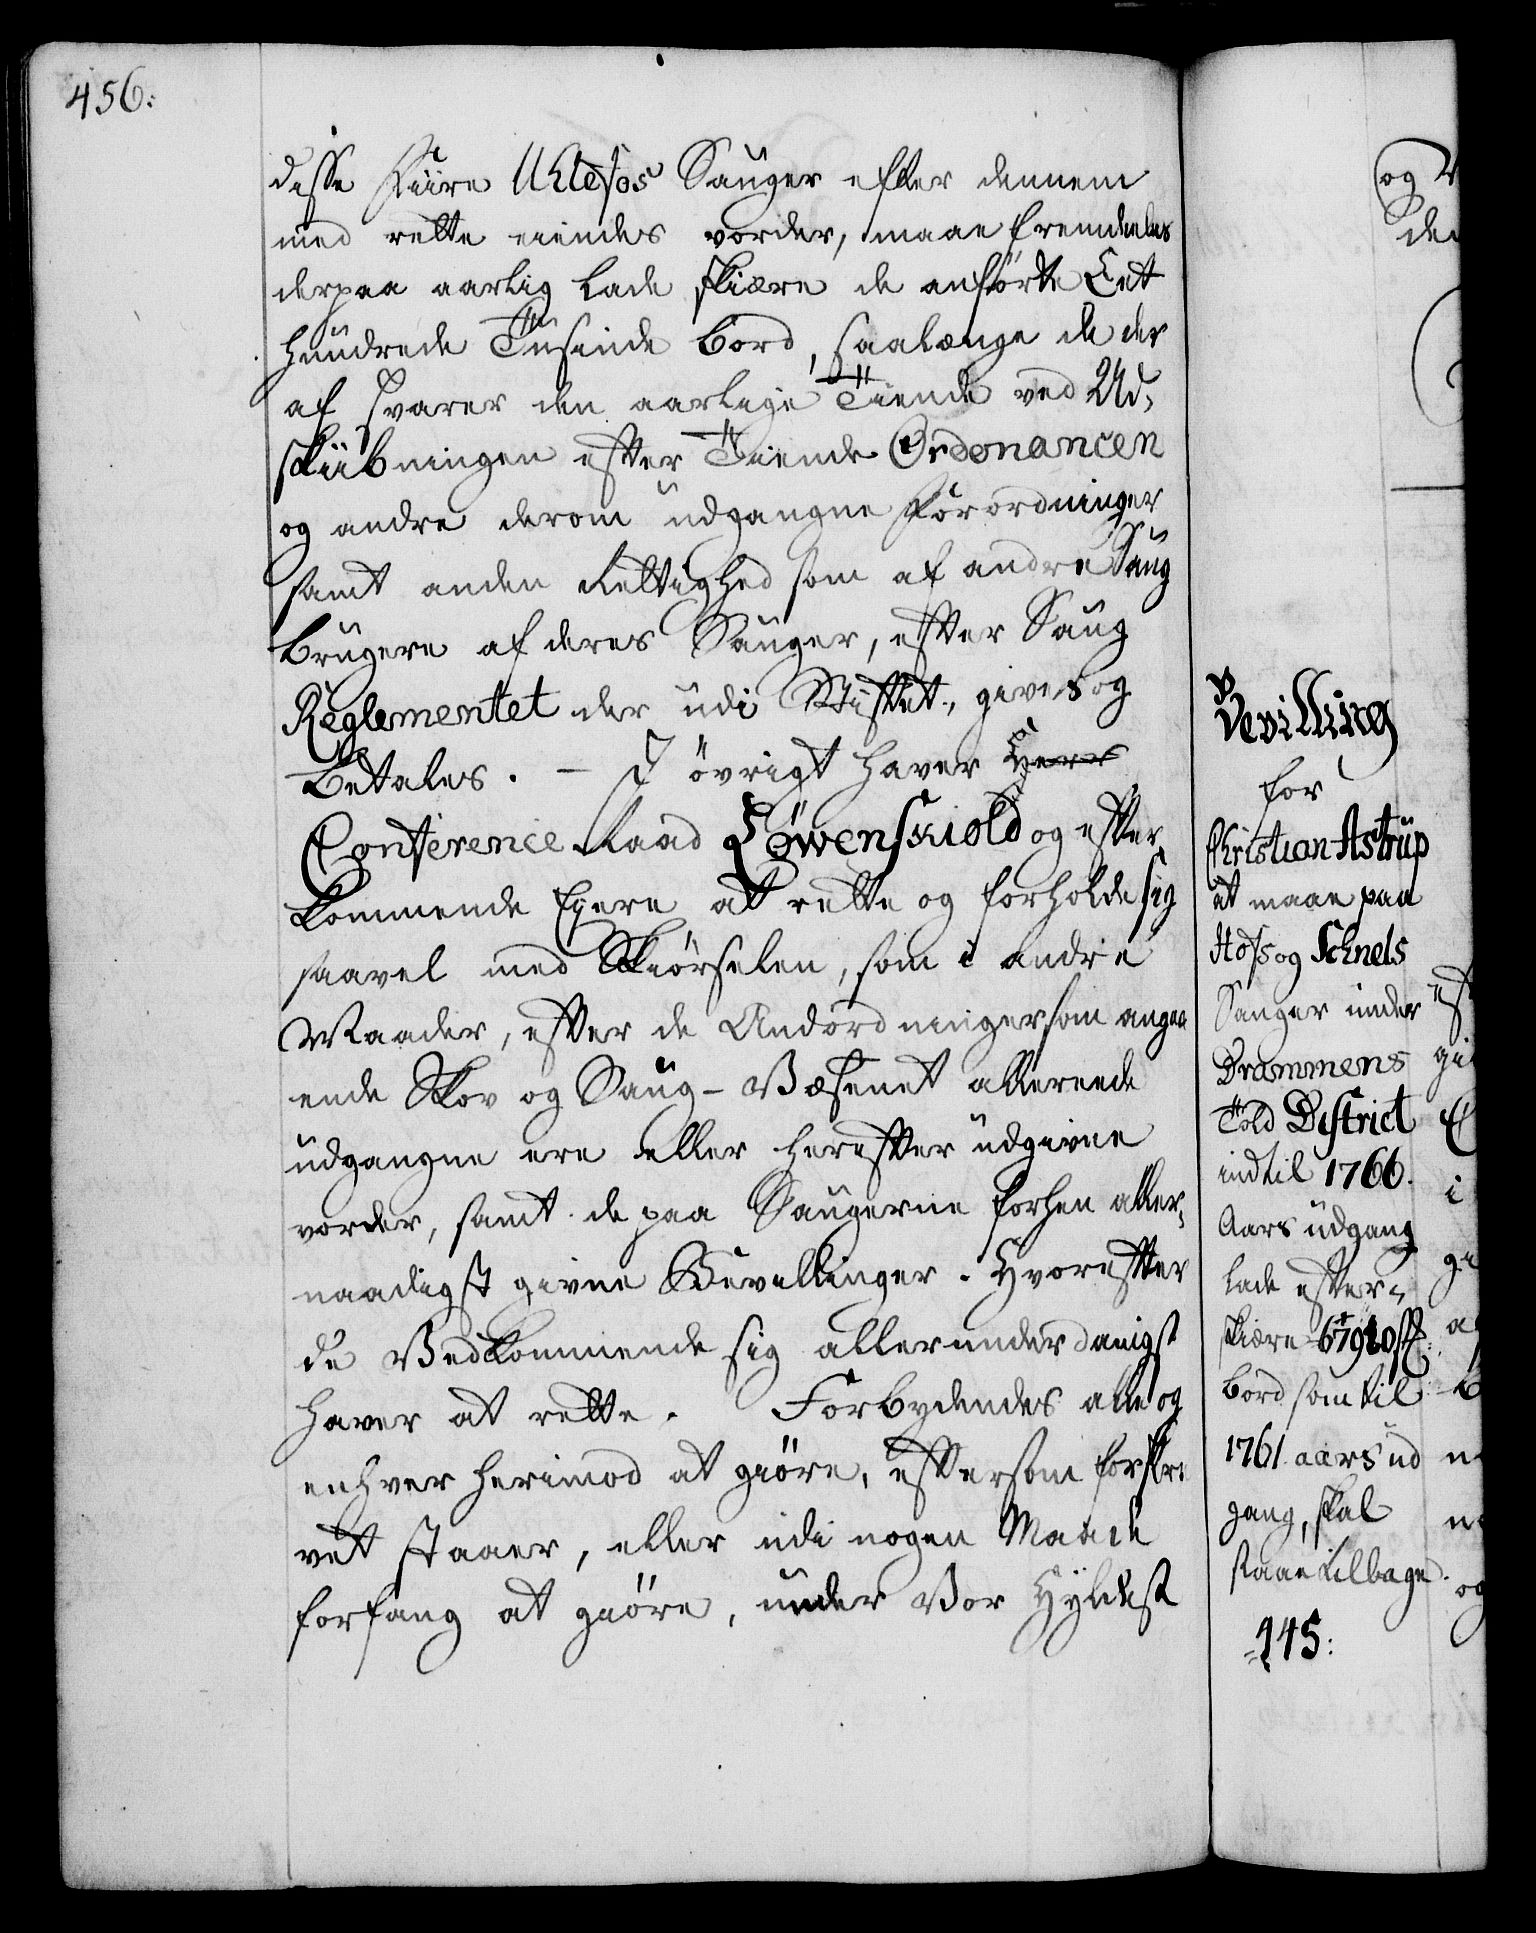 456:
disse Fiire Uhlefos Sauger efter dennem
med rette eiendes vorder, maae fremdeeles
derpaa aarlig lade skiære de anførte Eet
hundrede Tusinde bord, saalænge de der
af svarer den aarlige Tiende ved Ud,
skiibningen efter Tiende Ordonancen
og andre derom udgangne Forordninger
samt anden Rettighed som af andre Saug
brugere af deres Sauger, efter Saug
Reglementet der udi Stiftet, gives og
betales. - I øvrigt haver Herr
Conference Raad Løwenskiold og efter
kommende Eyere at rette og forholde sig
saavel med Skiørselen, som i andre
Maader, efter de Andordninger som angaa
ende Skov og Saug-Væsenet allereede
udgangne ere eller herefter udgivne
vorder, samt de paa Saugerne forhen aller,
naadigst givne Bevillinger. Hvorefter
de Vedkommende sig allerunderdanigst
haver at rette. Forbydendes alle og
enhver herimod at giøre, eftersom forskre
vet staaer, eller udi nogen Maade
forfang at giøre, under Vor Hyldest
Bevilling
for
Christian Astrup
at maae paa
Hofs og Schnels
Sauger under
Drammens
Told District
indtil 1766.
Aars udgang
lade efter,
skiære 67910 st:
bord som til
1761 aars ud
gang, skal
staae tilbage.
445: